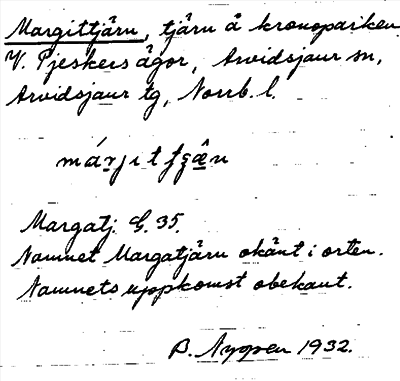 Margittjärn, tjärn å kronoparken
V. Pjeskers ägor, Arvidsjaur sn,
Arvidsjaur tg, Norrb. l.
Margatj. G. 35.
Namnet Margatjärn okänt i orten.
Namnets uppkomst obekant.
B. 1932.